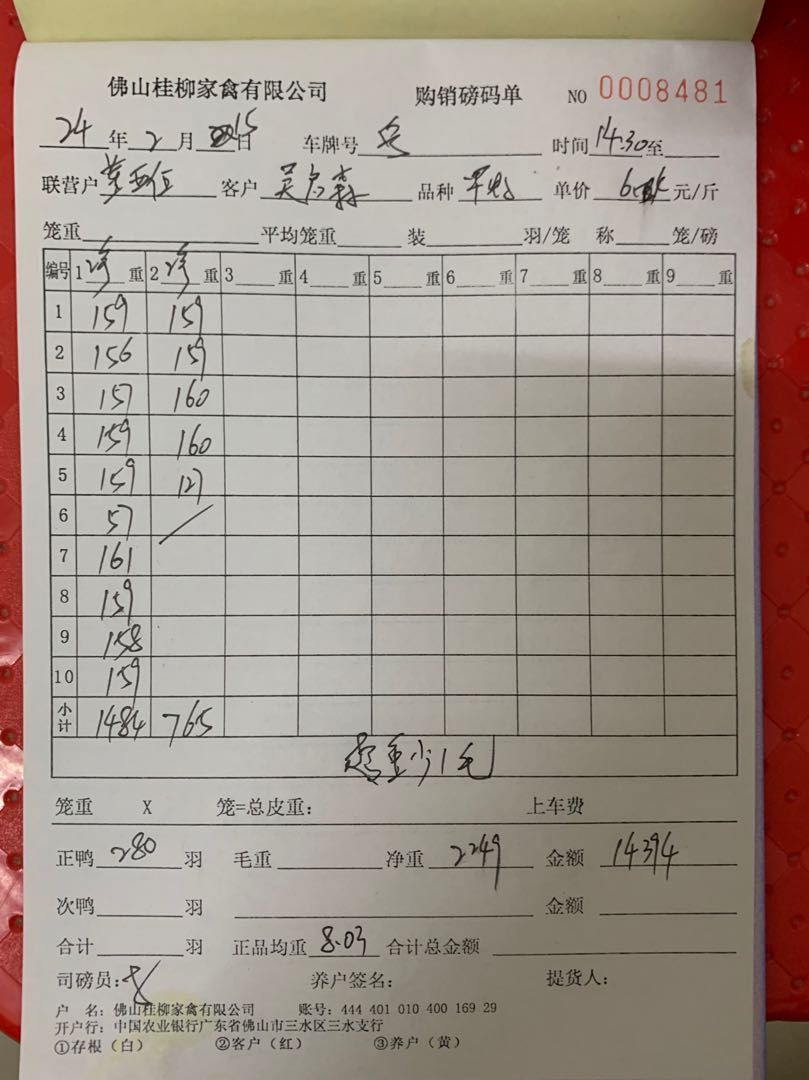 佛山桂柳家禽有限公司 购销磅码单 NO 0008481
24 年 2 月 15 日 车牌号 时间 14:30 至
联营户 客户 品种 单价 元/斤
笼重 平均笼重 装 羽/笼 称 笼/磅
编号 1 净 重 2 净 重 3 重 4 重 5 重 6 重 7 重 8 重 9 重
1 159 159
2 156 159
3 157 160
4 159 160
5 159 127
6 57
7 161
8 159
9 158
10 159
小计 1484 765
超重少1毛
笼重 X 笼=总皮重: 上车费
正鸭 280 羽 毛重 净重 2249 金额 14394
次鸭 羽 金额
合计 羽 正品均重 8.03 合计总金额
司磅员: 养户签名: 提货人:
户 名: 佛山桂柳家禽有限公司 账号: 444 401 010 400 169 29
开户行: 中国农业银行广东省佛山市三水区三水支行
①存根（白） ②客户（红） ③养户（黄）